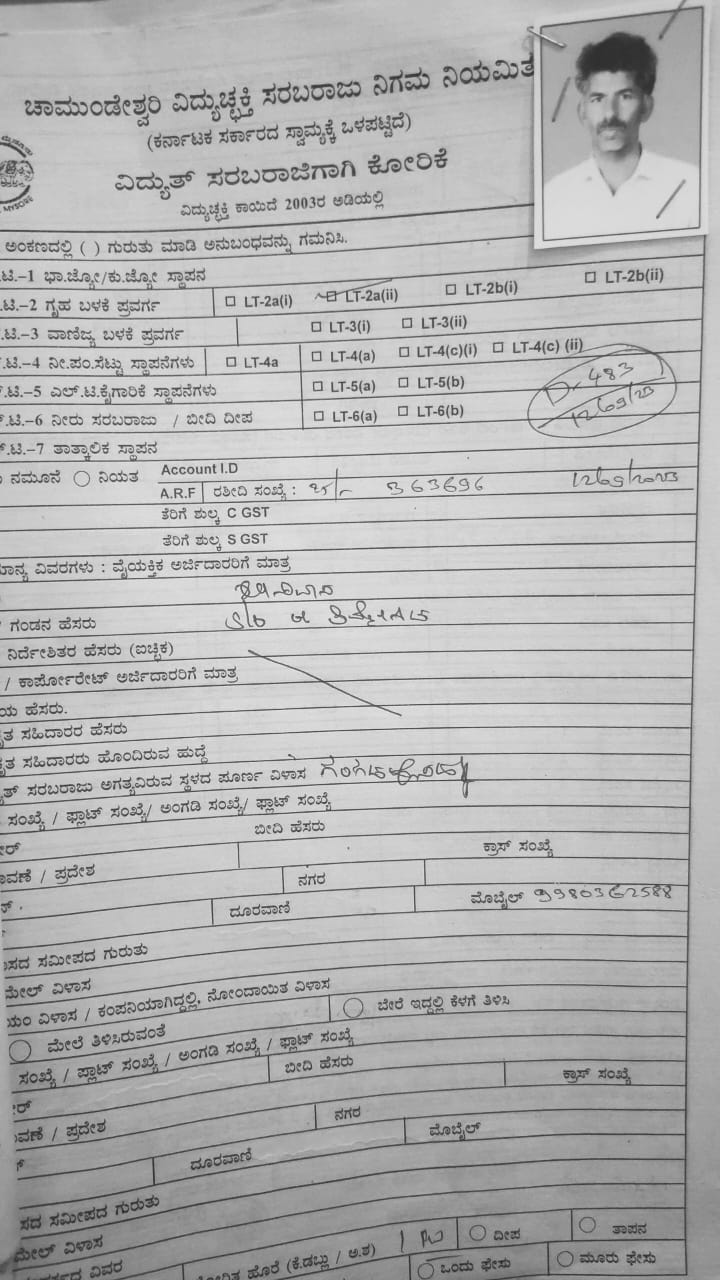 ಚಾಮುಂಡೇಶ್ವರಿ ವಿದ್ಯುಚ್ಛಕ್ತಿ ಸರಬರಾಜು ನಿಗಮ ನಿಯಮಿತ
(ಕರ್ನಾಟಕ ಸರ್ಕಾರದ ಸ್ವಾಮ್ಯಕ್ಕೆ ಒಳಪಟ್ಟಿದೆ)
ವಿದ್ಯುತ್ ಸರಬರಾಜಿಗಾಗಿ ಕೋರಿಕೆ
MYSORE
ವಿದ್ಯುಚ್ಛಕ್ತಿ ಕಾಯಿದೆ 2003ರ ಅಡಿಯಲ್ಲಿ
ಅಂಕಣದಲ್ಲಿ ( ) ಗುರುತು ಮಾಡಿ ಅನುಬಂಧವನ್ನು ಗಮನಿಸಿ.
.ಟಿ.-1 ಭಾ.ಜ್ಯೋ/ಕು.ಜ್ಯೋ ಸ್ಥಾಪನ
.ಟಿ.-2 ಗೃಹ ಬಳಕೆ ಪ್ರವರ್ಗ LT-2a(i) LT-2a(ii) LT-2b(i) LT-2b(ii)
.ಟಿ.-3 ವಾಣಿಜ್ಯ ಬಳಕೆ ಪ್ರವರ್ಗ LT-3(i) LT-3(ii)
.ಟಿ.-4 ನೀ.ಪಂ.ಸೆಟ್ಟು ಸ್ಥಾಪನೆಗಳು LT-4a LT-4(a) LT-4(c)(i) LT-4(c) (ii)
.ಟಿ.-5 ಎಲ್.ಟಿ.ಕೈಗಾರಿಕೆ ಸ್ಥಾಪನೆಗಳು LT-5(a) LT-5(b)
.ಟಿ.-6 ನೀರು ಸರಬರಾಜು / ಬೀದಿ ದೀಪ LT-6(a) LT-6(b)
483
.ಟಿ.-7 ತಾತ್ಕಾಲಿಕ ಸ್ಥಾಪನ
ನಮೂನೆ ನಿಯತ Account I.D
A.R.F ರಶೀದಿ ಸಂಖ್ಯೆ : 363696
ತೆರಿಗೆ ಶುಲ್ಕ C GST
ತೆರಿಗೆ ಶುಲ್ಕ S GST
ವಿವರಗಳು : ವೈಯಕ್ತಿಕ ಅರ್ಜಿದಾರರಿಗೆ ಮಾತ್ರ
/ ಗಂಡನ ಹೆಸರು
ನಿರ್ದೇಶಿತರ ಹೆಸರು (ಐಚ್ಛಿಕ)
/ ಕಾರ್ಪೋರೇಟ್ ಅರ್ಜಿದಾರರಿಗೆ ಮಾತ್ರ
ಯ ಹೆಸರು.
ೃತ ಸಹಿದಾರರ ಹೆಸರು
ೃತ ಸಹಿದಾರರು ಹೊಂದಿರುವ ಹುದ್ದೆ
ತ್ ಸರಬರಾಜು ಅಗತ್ಯವಿರುವ ಸ್ಥಳದ ಪೂರ್ಣ ವಿಳಾಸ
ಸಂಖ್ಯೆ / ಫ್ಲಾಟ್ ಸಂಖ್ಯೆ/ ಅಂಗಡಿ ಸಂಖ್ಯೆ/ ಫ್ಲಾಟ್ ಸಂಖ್ಯೆ
ಬೀದಿ ಹೆಸರು
ಕ್ರಾಸ್ ಸಂಖ್ಯೆ
ಾವಣೆ / ಪ್ರದೇಶ
ನಗರ
ದೂರವಾಣಿ
ಮೊಬೈಲ್ 9980362588
ಸದ ಸಮೀಪದ ಗುರುತು
ಮೇಲ್ ವಿಳಾಸ
ಯಂ ವಿಳಾಸ / ಕಂಪನಿಯಾಗಿದ್ದಲ್ಲಿ, ನೋಂದಾಯಿತ ವಿಳಾಸ
ಮೇಲೆ ತಿಳಿಸಿರುವಂತೆ ಬೇರೆ ಇದ್ದಲ್ಲಿ ಕೆಳಗೆ ತಿಳಿಸಿ
ಸಂಖ್ಯೆ / ಪ್ಲಾಟ್ ಸಂಖ್ಯೆ / ಅಂಗಡಿ ಸಂಖ್ಯೆ / ಫ್ಲಾಟ್ ಸಂಖ್ಯೆ
ಬೀದಿ ಹೆಸರು
ಕ್ರಾಸ್ ಸಂಖ್ಯೆ
ಾವಣೆ / ಪ್ರದೇಶ
ನಗರ
ಮೊಬೈಲ್
ದೂರವಾಣಿ
ಸದ ಸಮೀಪದ ಗುರುತು
ಮೇಲ್ ವಿಳಾಸ
ವಿವರ ಹೊರೆ (ಕೆ.ಡಬ್ಲು / ಅ.ಶ) ದೀಪ ತಾಪನ
ಒಂದು ಫೇಸು ಮೂರು ಫೇಸು